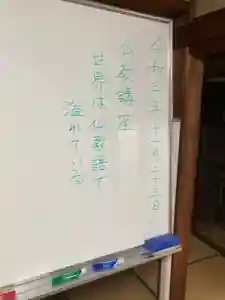 令和三年 十一月二十三日
仏教講座
世界は仏教語で
溢れている